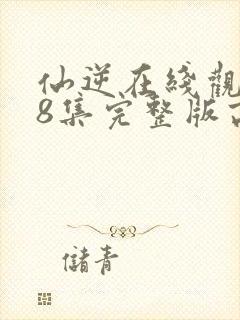 仙逆在綫觀
8集完整版
儲青